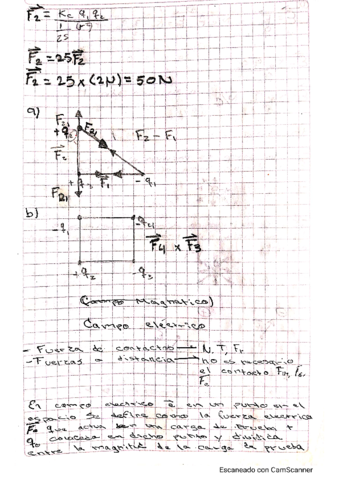 F₂ = Kc q₁ q₂
1/25 (r²)
F₂ = 25F₂
F₂ = 25 x (2N) = 50N
a)
F₂ - F₁
F₂
F₁
+q₂ - q₁
b)
-q₁ -q₄
F₄ x F₃
+q₂ -q₃
Campo Magnatico)
Campo eléctrico
- Fuerza de contacto → N, T, Fr
- Fuerzas a distancia → no es necesario
el contacto. Fe
El campo electrico E en un punto en el
espacio se define como la fuerza electrica
Fe que actua sobre una carga de prueba +
q₀ colocada en dicho punto y dividida
entre la magnitud de la carga de prueba
Escaneado con CamScanner